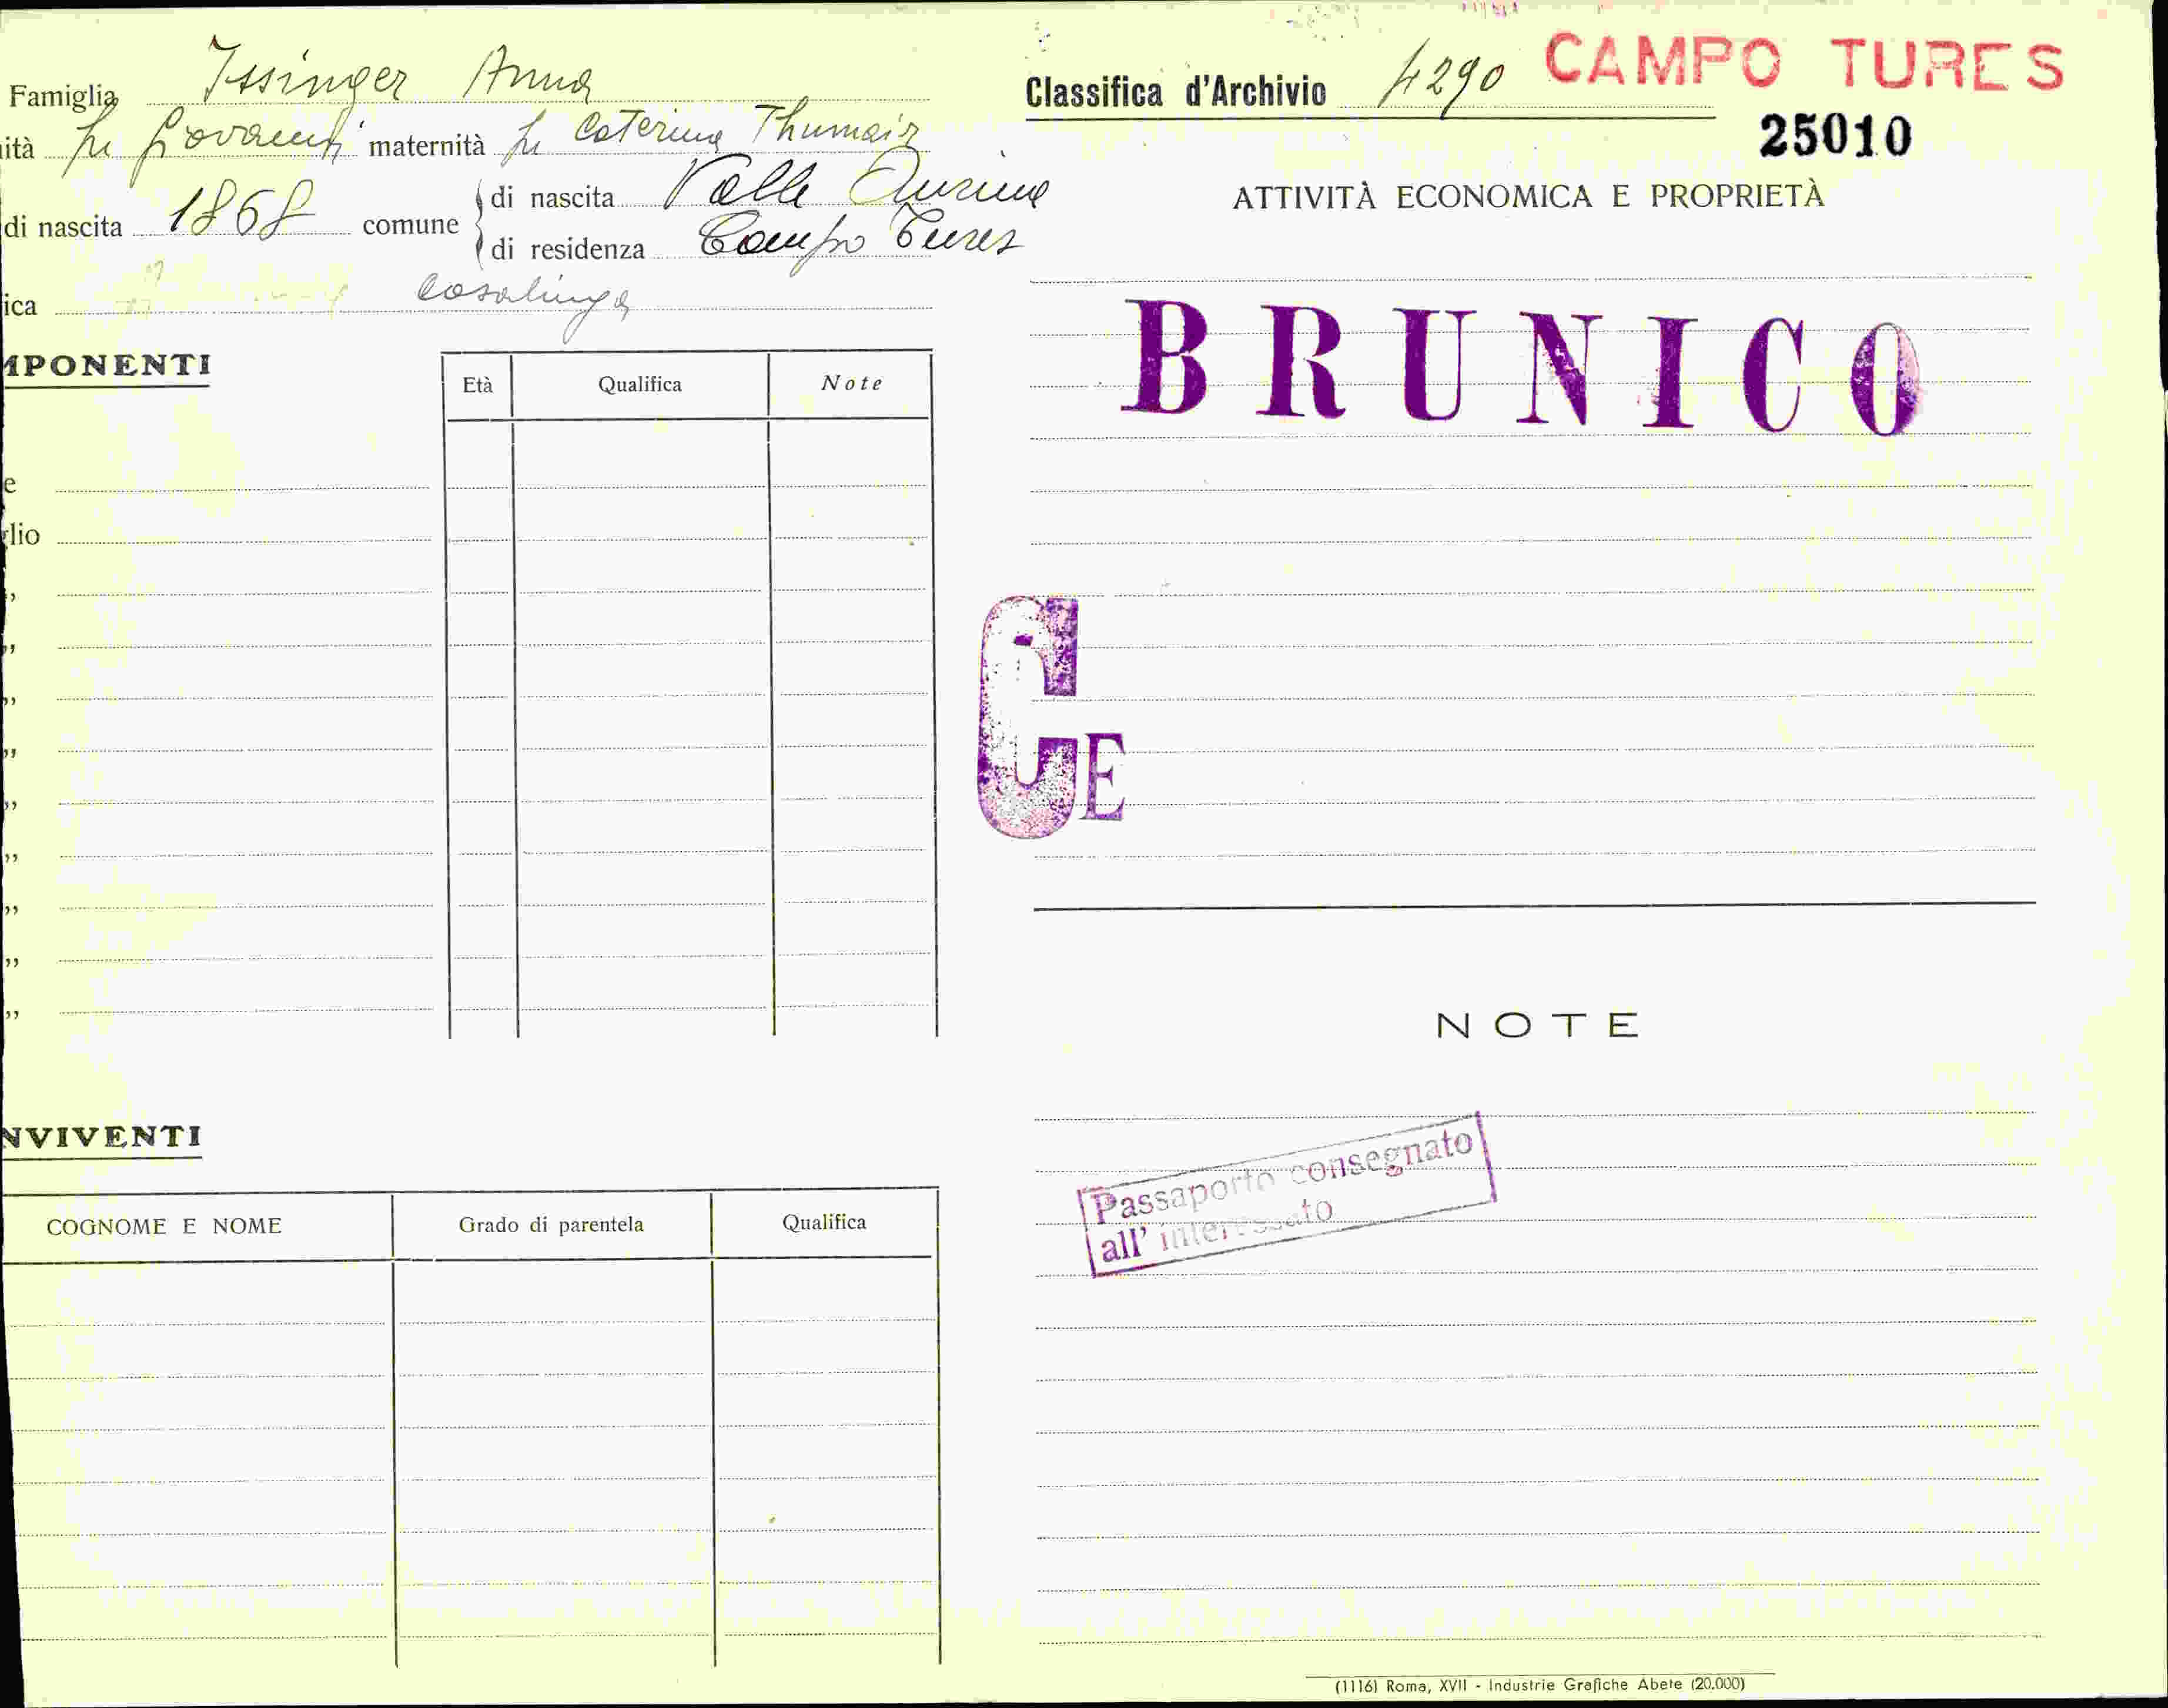 Famiglia Issinger Anna
ità fu Giovanni maternità fu Caterina Thumair
di nascita 1868 comune
di nascita Valle Aurina
di residenza Campo Tures
ica casalinga
MPONENTI
Età Qualifica Note
e
glio
,,
,,
,,
,,
,,
,,
,,
,,
,,
NVIVENTI
COGNOME E NOME Grado di parentela Qualifica
Classifica d'Archivio 4290 CAMPO TURES
25010
ATTIVITÀ ECONOMICA E PROPRIETÀ
BRUNICO
CE
NOTE
Passaporto consegnato
all' interessato
(1116) Roma, XVII - Industrie Grafiche Abete (20.000)